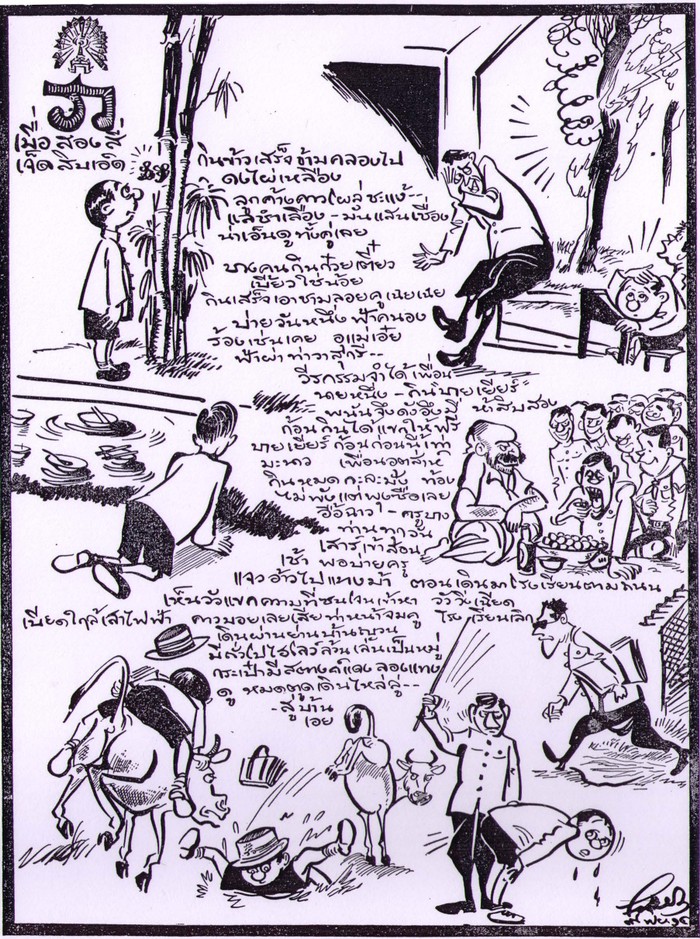 เมื่อสองสี่
เจ็ดสิบเอ็ด
กินข้าวเสร็จข้ามคลองไป
ดงไผ่เหลือง
ลูกค้างคาวโผล่ชะแง้
แลชำเลือง - มันแสนเชื่อง
น่าเอ็นดูทั้งคู่เลย
บางคนกินก๋วยเตี๋ยว
เบี้ยวใช้น้อย
กินเสร็จเอาชามลอยคูเฉยเฉย
บ่ายวันหนึ่งฟ้าคนอง
ร้องเช่นเคย อุแม่เอ๋ย
ฟ้าผ่าท่าวาสุกรี--
วีรกรรมจำได้เพื่อน
นายหนึ่ง - กินบายเยียร์
พนันจึงดังอึงมี่ น้ำสิบสอง
ก้อนกินได้แขกให้ฟรี
บายเยียร์ก้อนก่อนนี้เท่า
มะนาว เพื่อนอุตส่าห์
กินหมดกะละมัง ท้อง
ไม่พังแต่พุงรือเลย
อื้อฉาว - ครูบาง
ท่านทุกวัน
เสาร์เข้าสอน
เช้า พอบ่ายครู
แจวอ้าวไปแทงม้า ตอนเดินมาโรงเรียนตามถนน
เห็นวัวแขกความที่ซนโจนเข้าหา วัววิ่งเฉียด
เบียดใกล้เสาไฟฟ้า คาวบอยเลยเสียท่าหน้าจมคู โรงเรียนเลิก
เดินผ่านย่านบ้านญวน
มีถั่วโปไฮโลว์ล้วนเล่นเป็นหมู่
กระเป๋ามีสตางค์แดงลองแทง
ดู หมดตูดเดินไหล่ลู่--
-สู่บ้าน
เอย